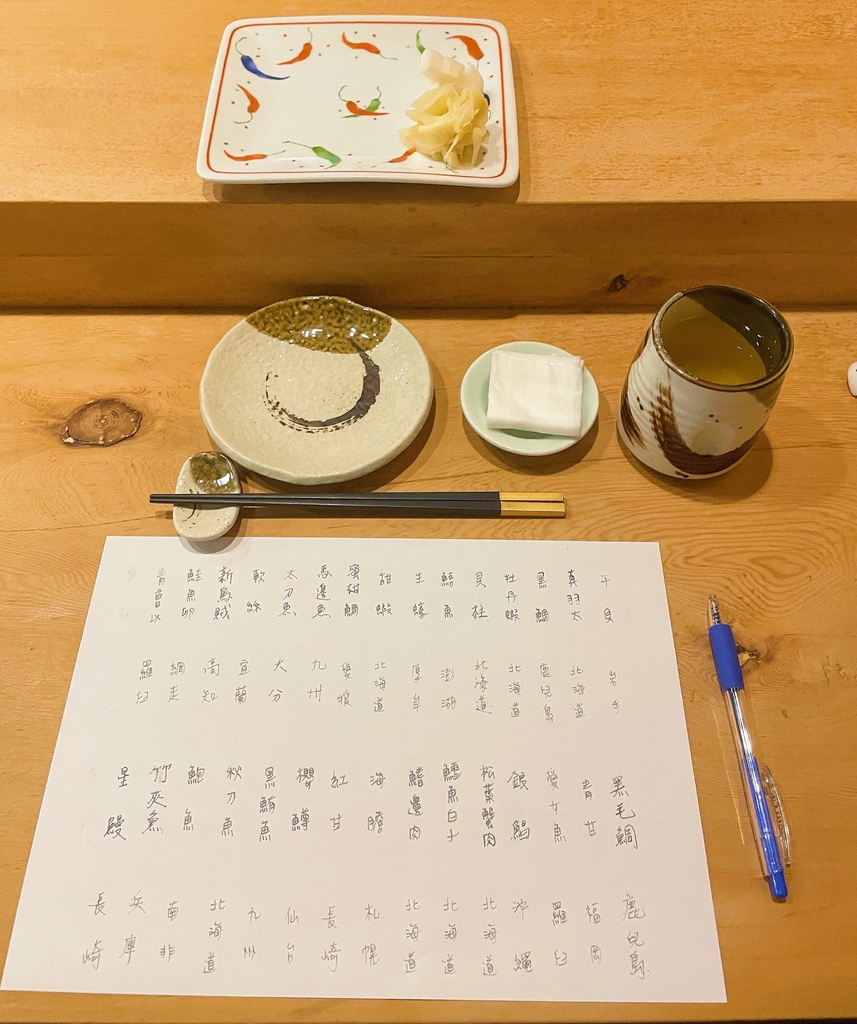 干貝
真羽太
黑鯛
牡丹蝦
貝柱
鯖魚
生蠔
甜蝦
蜜柑鯛
馬邊魚
太刀魚
軟絲
新烏賊
鮭魚卵
岩手
北海道
鹿兒島
北海道
北海道
澎湖
厚岸
北海道
愛媛
九州
大分
宜蘭
高知
網走
羅臼
黑毛鯛
青甘
愛女魚
銀鯧
松葉蟹肉
鱈魚白子
鰭邊肉
海膽
紅甘
櫻鱒
黑鮪魚
秋刀魚
鮑魚
竹夾魚
星鰻
鹿兒島
福岡
羅臼
沖繩
北海道
北海道
北海道
札幌
長崎
仙台
九州
北海道
南非
兵庫
長崎